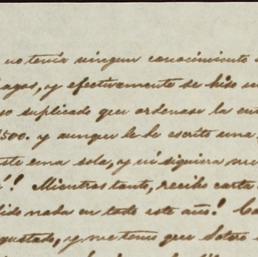 no tenia ningun conocimiento
y efectivamente se hiso
suplicado que ordenase la
500. y aunque le he escrito una
una sola, y ni siquiera me
! Mientras tanto, recibo carta
nada en todo este año!
y me temo que Sotero